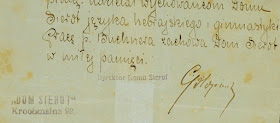 udzielał wychowańcom Domu
Sierot języka hebrajskiego i gimnastyki
Pracę p. Bucknera zachowa Dom Sierot
w miłej pamięci.
Dyrektor Domu Sierot
„DOM SIEROT”
Krochmalna 92.